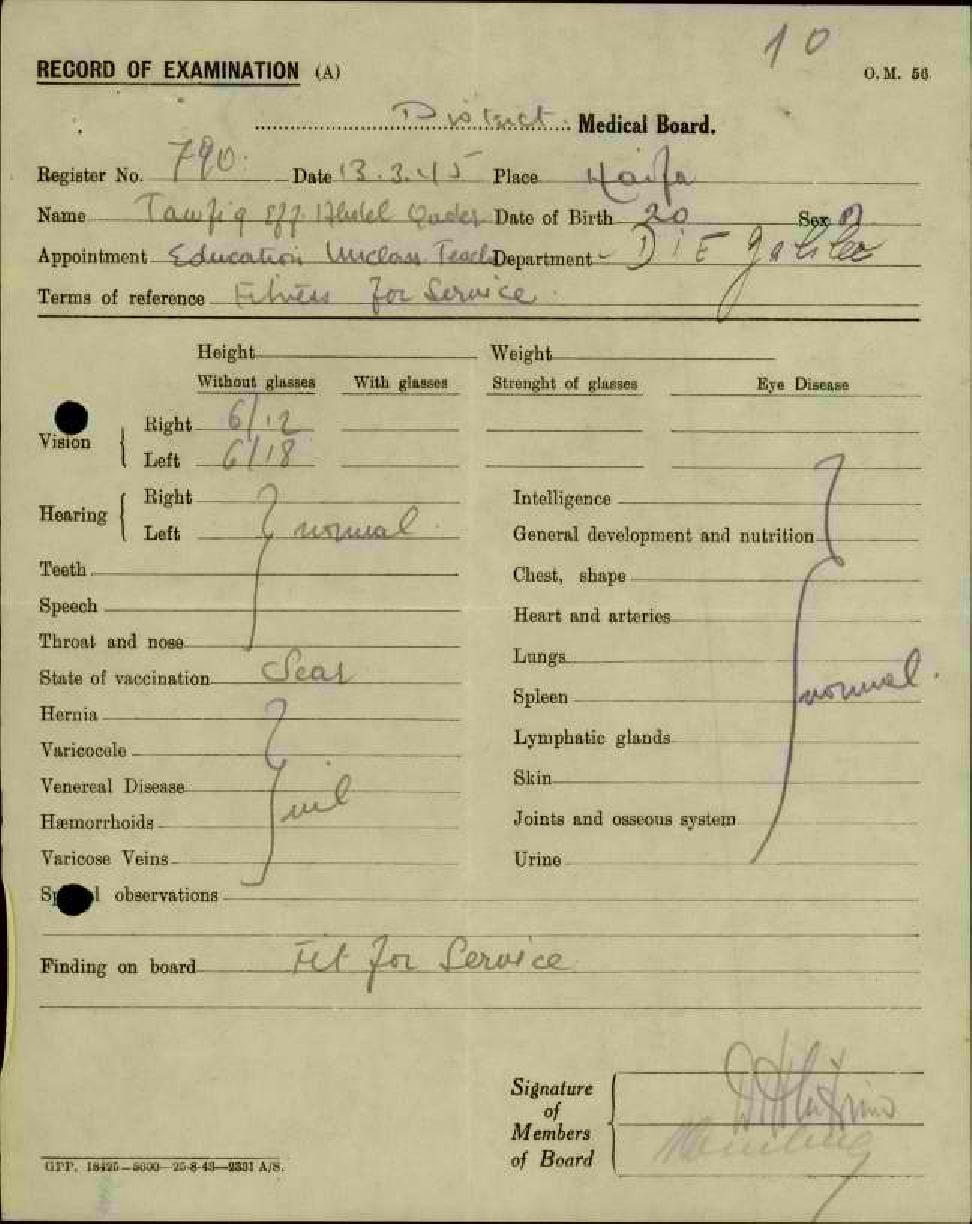 10
RECORD OF EXAMINATION (A)
O. M. 56
District Medical Board.
Register No. 790. Date 13.3.45 Place Haifa
Name Tawfiq eff. Abdel Qader Date of Birth 20 Sex
Appointment Education Unclass. Teach Department D i E Galilee
Terms of reference Fitness for Service.
Height Weight
Without glasses With glasses Strenght of glasses Eye Disease
Vision
Right 6/12
Left 6/18
Hearing
Right
Left
normal.
Teeth
Speech
Throat and nose
State of vaccination Scar
Hernia
Varicocele
Venereal Disease
nil
Hæmorrhoids
Varicose Veins
Intelligence
General development and nutrition
Chest, shape
Heart and arteries
Lungs
Spleen
normal.
Lymphatic glands
Skin
Joints and osseous system
Urine
observations
Finding on board Fit for Service
Signature
of
Members
of Board
GPP. 18425—5000—25-8-43—2331 A/S.